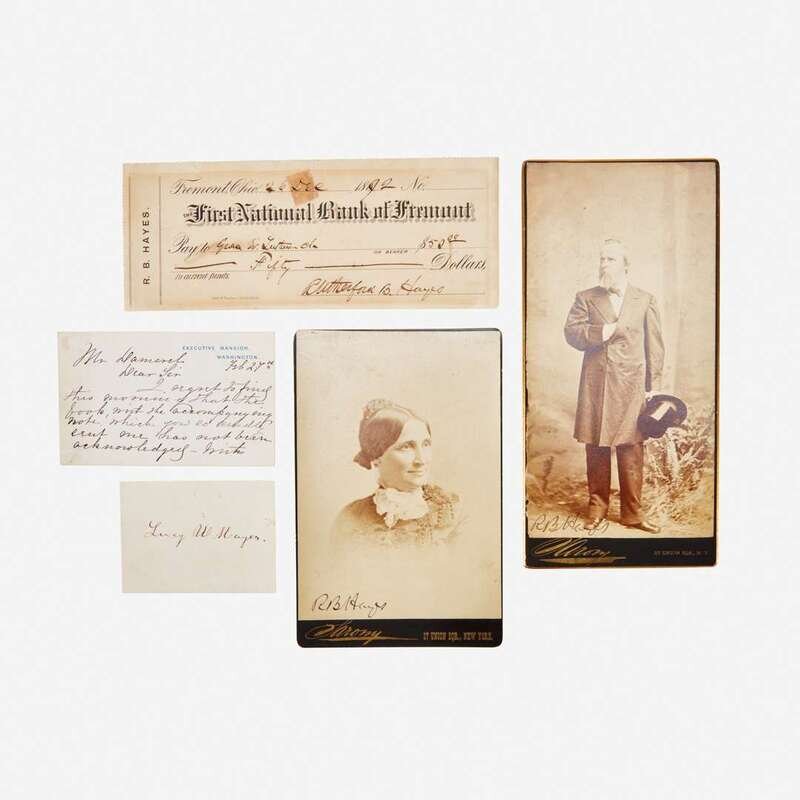 R. B. HAYES.
Fremont, Ohio 26 Dec 1892 No.
THE First National Bank of Fremont
Pay to OR BEARER $50.00
Fifty Dollars,
in current funds.
Rutherford B. Hayes
EXECUTIVE MANSION,
WASHINGTON.
Feb 27th
Dear Sir
I regret to find
this morning that the
book, with the accompanying
note, which you so
sent me has not been
acknowledged - with
Lucy W Hayes.
R B Hayes
Sarony
37 UNION SQR., NEW YORK.
R B Hayes
Sarony
37 UNION SQR., N.Y.